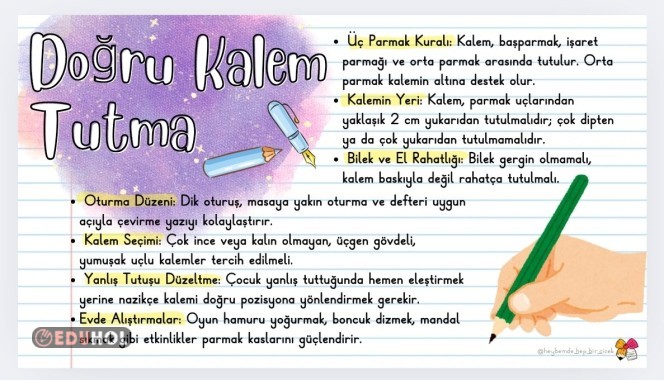 Doğru Kalem
Tutma
• Üç Parmak Kuralı: Kalem, başparmak, işaret
parmağı ve orta parmak arasında tutulur. Orta
parmak kalemin altına destek olur.
• Kalemin Yeri: Kalem, parmak uçlarından
yaklaşık 2 cm yukarıdan tutulmalıdır; çok dipten
ya da çok yukarıdan tutulmamalıdır.
• Bilek ve El Rahatlığı: Bilek gergin olmamalı,
kalem baskıyla değil rahatça tutulmalı.
• Oturma Düzeni: Dik oturuş, masaya yakın oturma ve defteri uygun
açıyla çevirme yazıyı kolaylaştırır.
• Kalem Seçimi: Çok ince veya kalın olmayan, üçgen gövdeli,
yumuşak uçlu kalemler tercih edilmeli.
• Yanlış Tutuşu Düzeltme: Çocuk yanlış tuttuğunda hemen eleştirmek
yerine nazikçe kalemi doğru pozisyona yönlendirmek gerekir.
• Evde Alıştırmalar: Oyun hamuru yoğurmak, boncuk dizmek, mandal
gibi etkinlikler parmak kaslarını güçlendirir.
EDUHOL